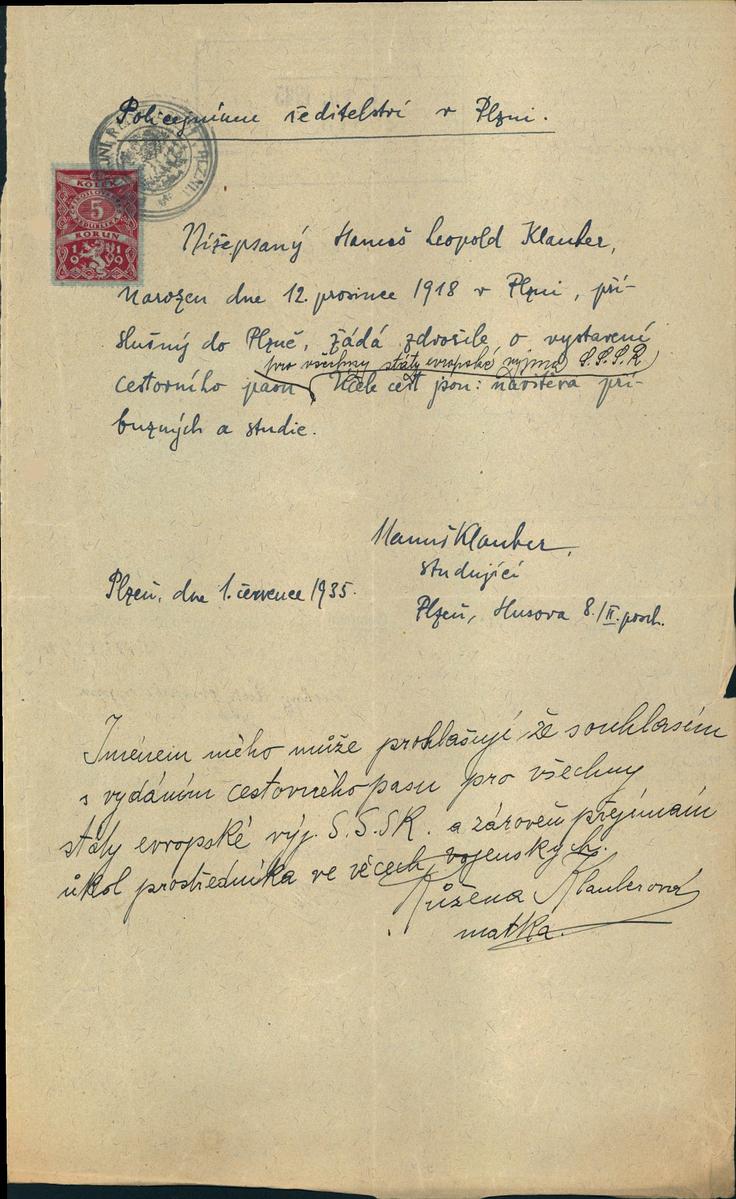 Policejnímu ředitelství v Plzni.
KOLEK
5
KORUN
1919
Nížepsaný Hanuš Leopold Klauber,
narozen dne 12. prosince 1918 v Plzni, pří-
slušný do Plzně, žádá zdvořile o vystavení
pro všechny státy evropské vyjma S.S.S.R
cestovního pasu. Účele cest jsou: návštěva pří-
buzných a studie.
Hanuš Klauber,
studující
Plzeň, dne 1. července 1935.
Plzeň, Husova 8./II. posch.
Jménem mého muže prohlašuji že souhlasím
s vydáním cestovného pasu pro všechny
státy evropské výj. S.S.SR. a zároveň přejímám
úkol prostředníka ve věcech vojenských.
Růžena Klauberová
matka.